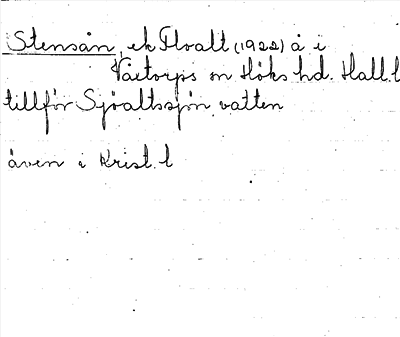 Stensån, ek Floalt (1922) å i
Våxtorps sn Höks hd. Hall. l
tillför Sjöaltssjön vatten
även i Krist. l